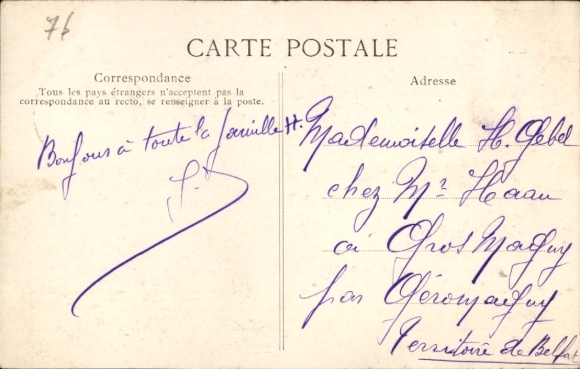 76
CARTE POSTALE
Correspondance
Tous les pays étrangers n'acceptent pas la
correspondance au recto, se renseigner à la poste.
Bonjour à toute la famille H.
Adresse
Mademoiselle H. Gebel
chez Mr Haan
à Gros Magny
par Géromagny
Territoire de Belfort